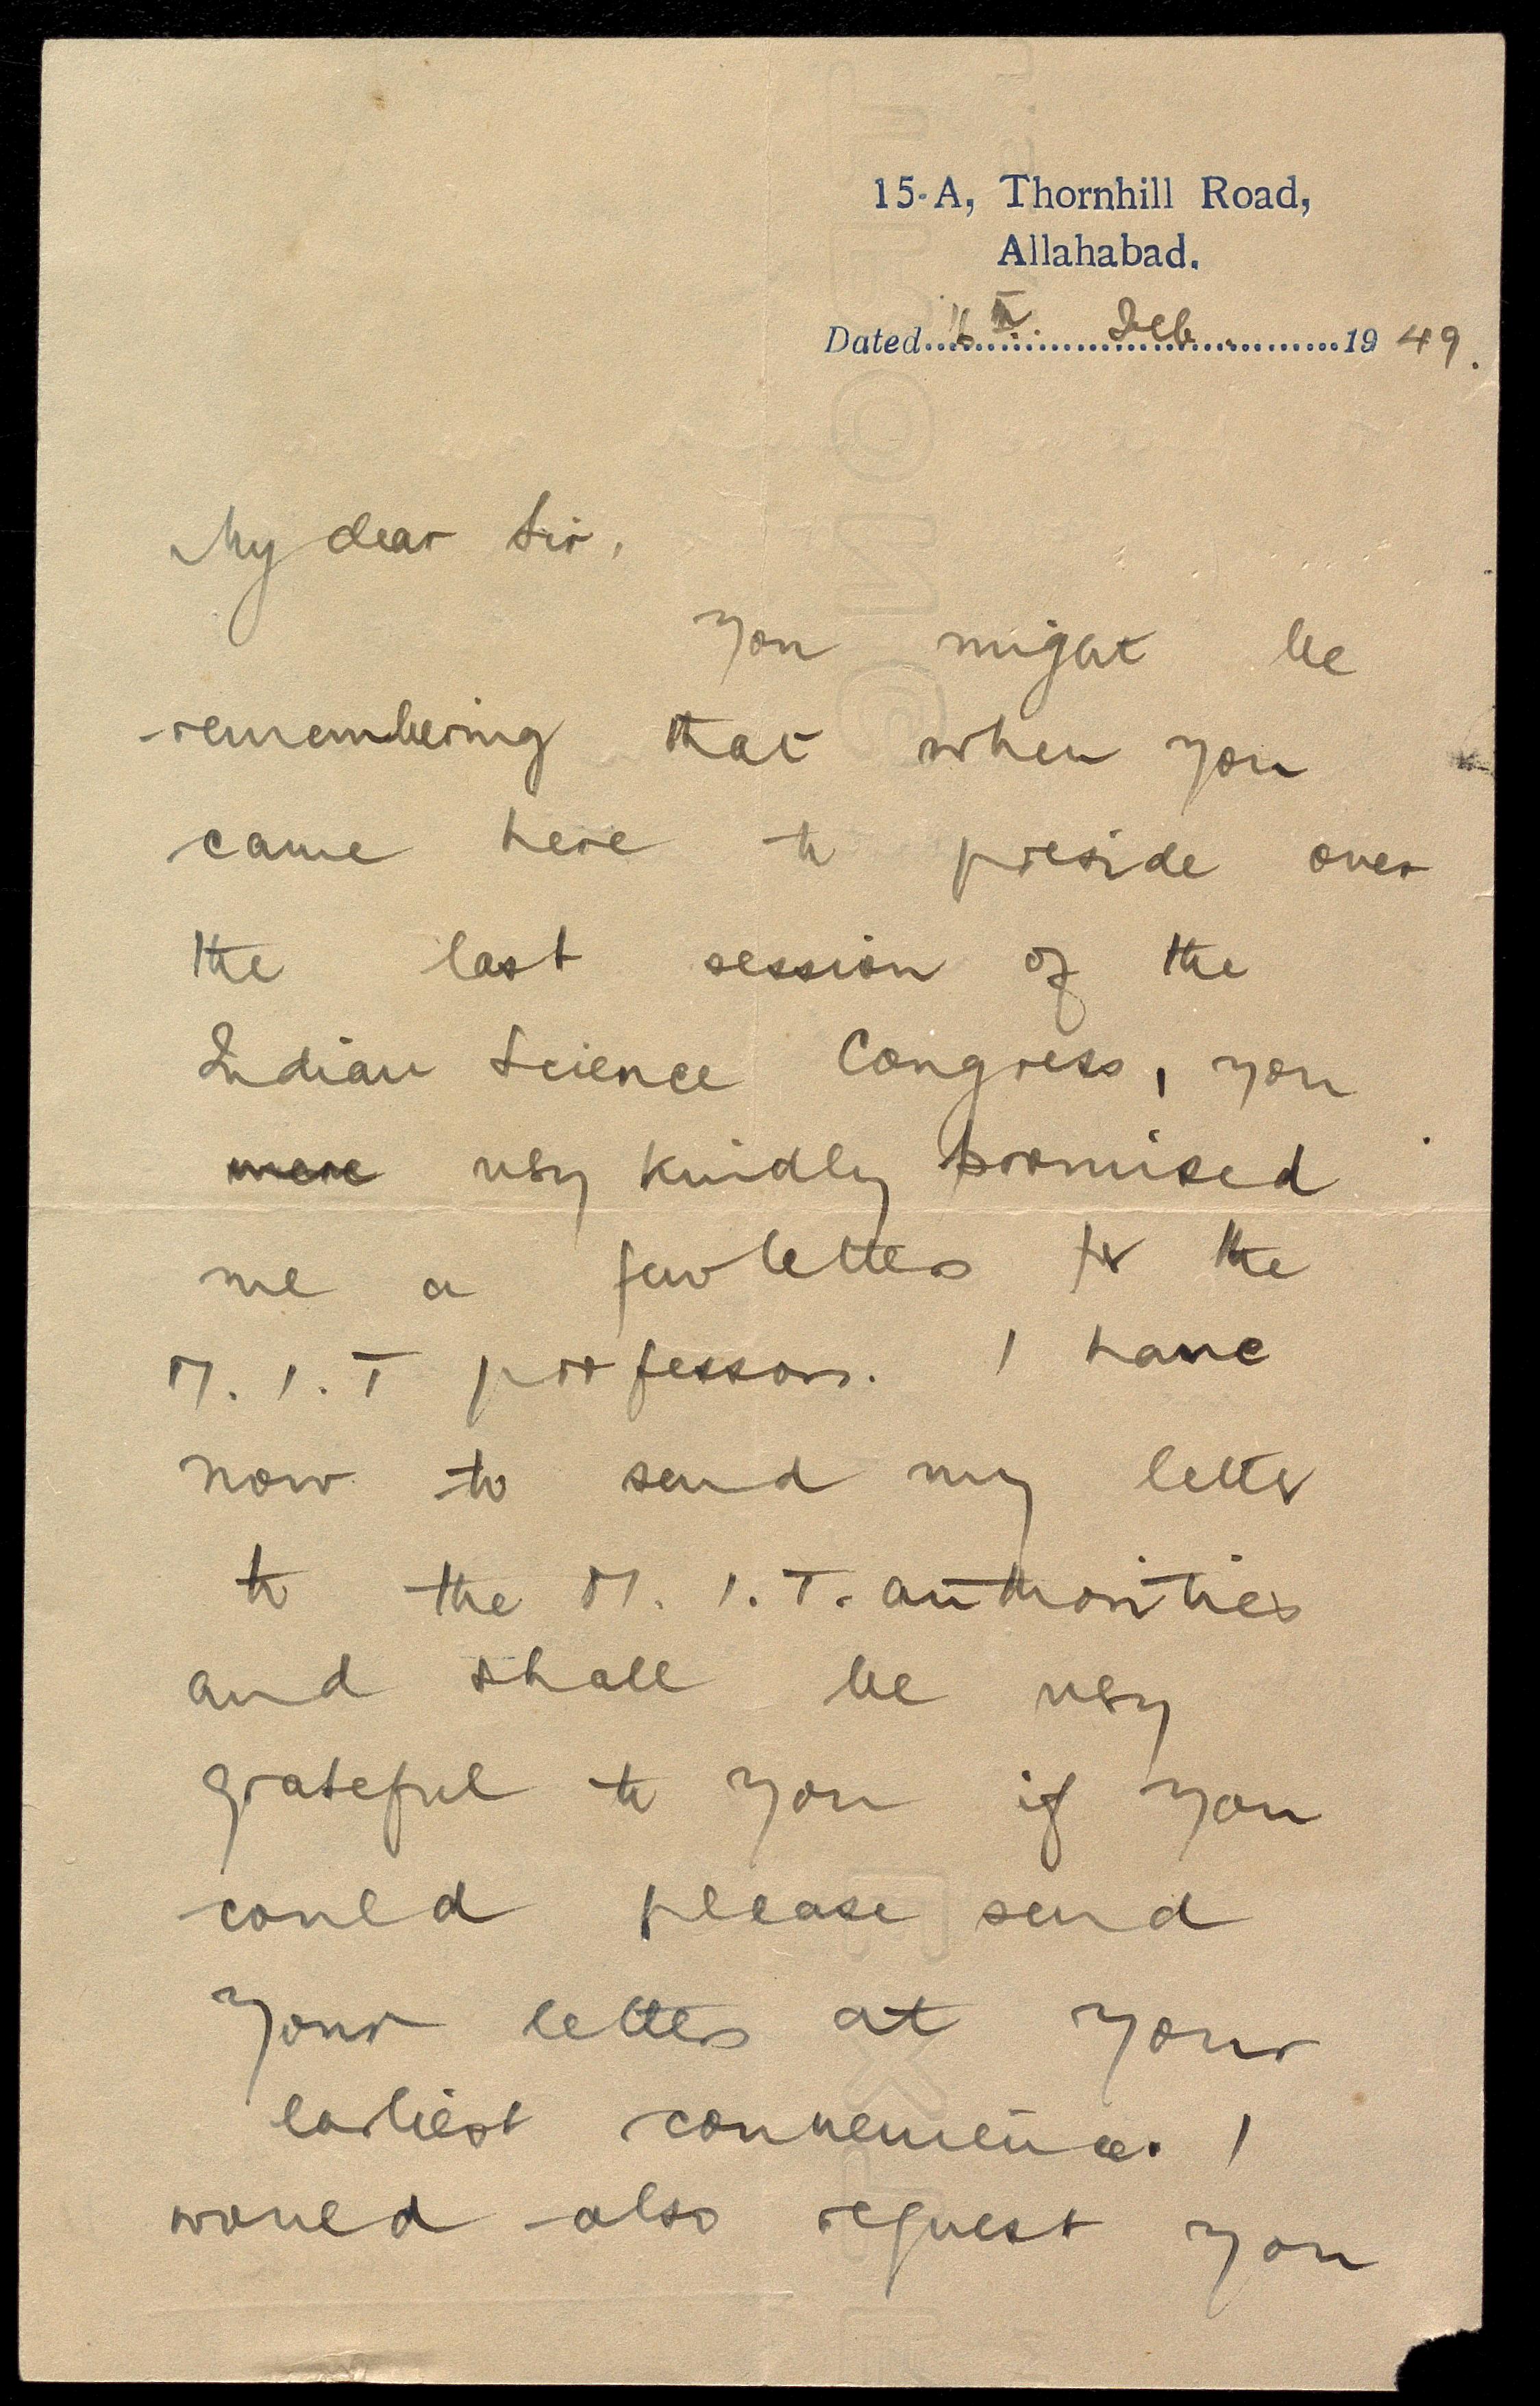 15-A, Thornhill Road,
Allahabad.
Dated 16 Feb. 1949.
My dear Sir,
you might be
remembering that when you
came here to preside over
the last session of the
Indian Science Congress, you
were very kindly promised
me a few letters to the
M.I.T professors. I have
now to send my letter
to the M.I.T. authorities
and shall be very
grateful to you if you
could please send
your letters at your
earliest convenience. I
would also request you